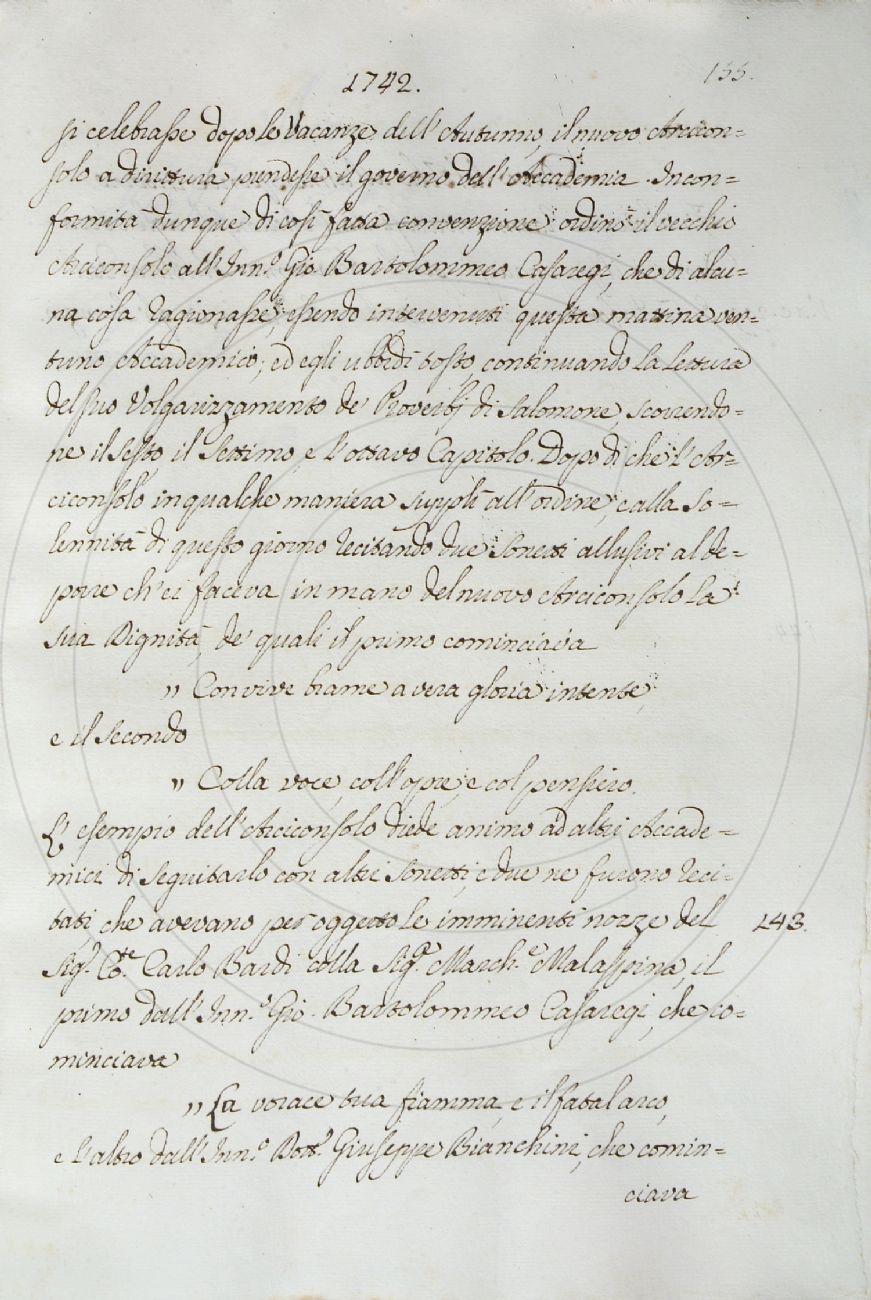 1742.
155.
si celebrasse dopo le Vacanze dell'Autunno, il nuovo Arcicon=
solo a dirittura prendesse il governo dell'Accademia. In con=
formità dunque di così fatta convenzione ordinò il vecchio
Arciconsolo all'Inn.º Gio. Bartolommeo Casaregi, che di alcu=
na cosa ragionasse, essendo intervenuti questa mattina ven=
tuno Accademici; ed egli ubbidì tosto, continuando la lettura
del suo Volgarizzamento de' Proverbj di Salomone, scorrendo=
ne il sesto, il settimo, e l'ottavo Capitolo. Dopo di che l'Ar=
ciconsolo in qualche maniera supplì all'ordine, e alla so=
lennità di questo giorno recitando due sonetti allusivi al de=
porre ch'ei faceva in mano del nuovo Arciconsolo la
sua Dignità, de' quali il primo cominciava
" Con vive brame a vera gloria intente,
e il secondo
" Colla voce, coll'opre, e col pensiero.
L'esempio dell'Arciconsolo diede animo ad altri Accade=
mici di seguitarlo con altri sonetti, e due ne furono reci=
tati, che avevano per oggetto le imminenti nozze del
143.
Sig.r Co.te Carlo Bardi colla Sig.ra March.e Malaspina, il
primo dall'Inn.º Gio. Bartolommeo Casaregi, che co=
minciava
" La vorace tua fiamma, e il fatal arco,
e l'altro dall'Inn.º Dott.r Giuseppe Bianchini, che comin=
ciava